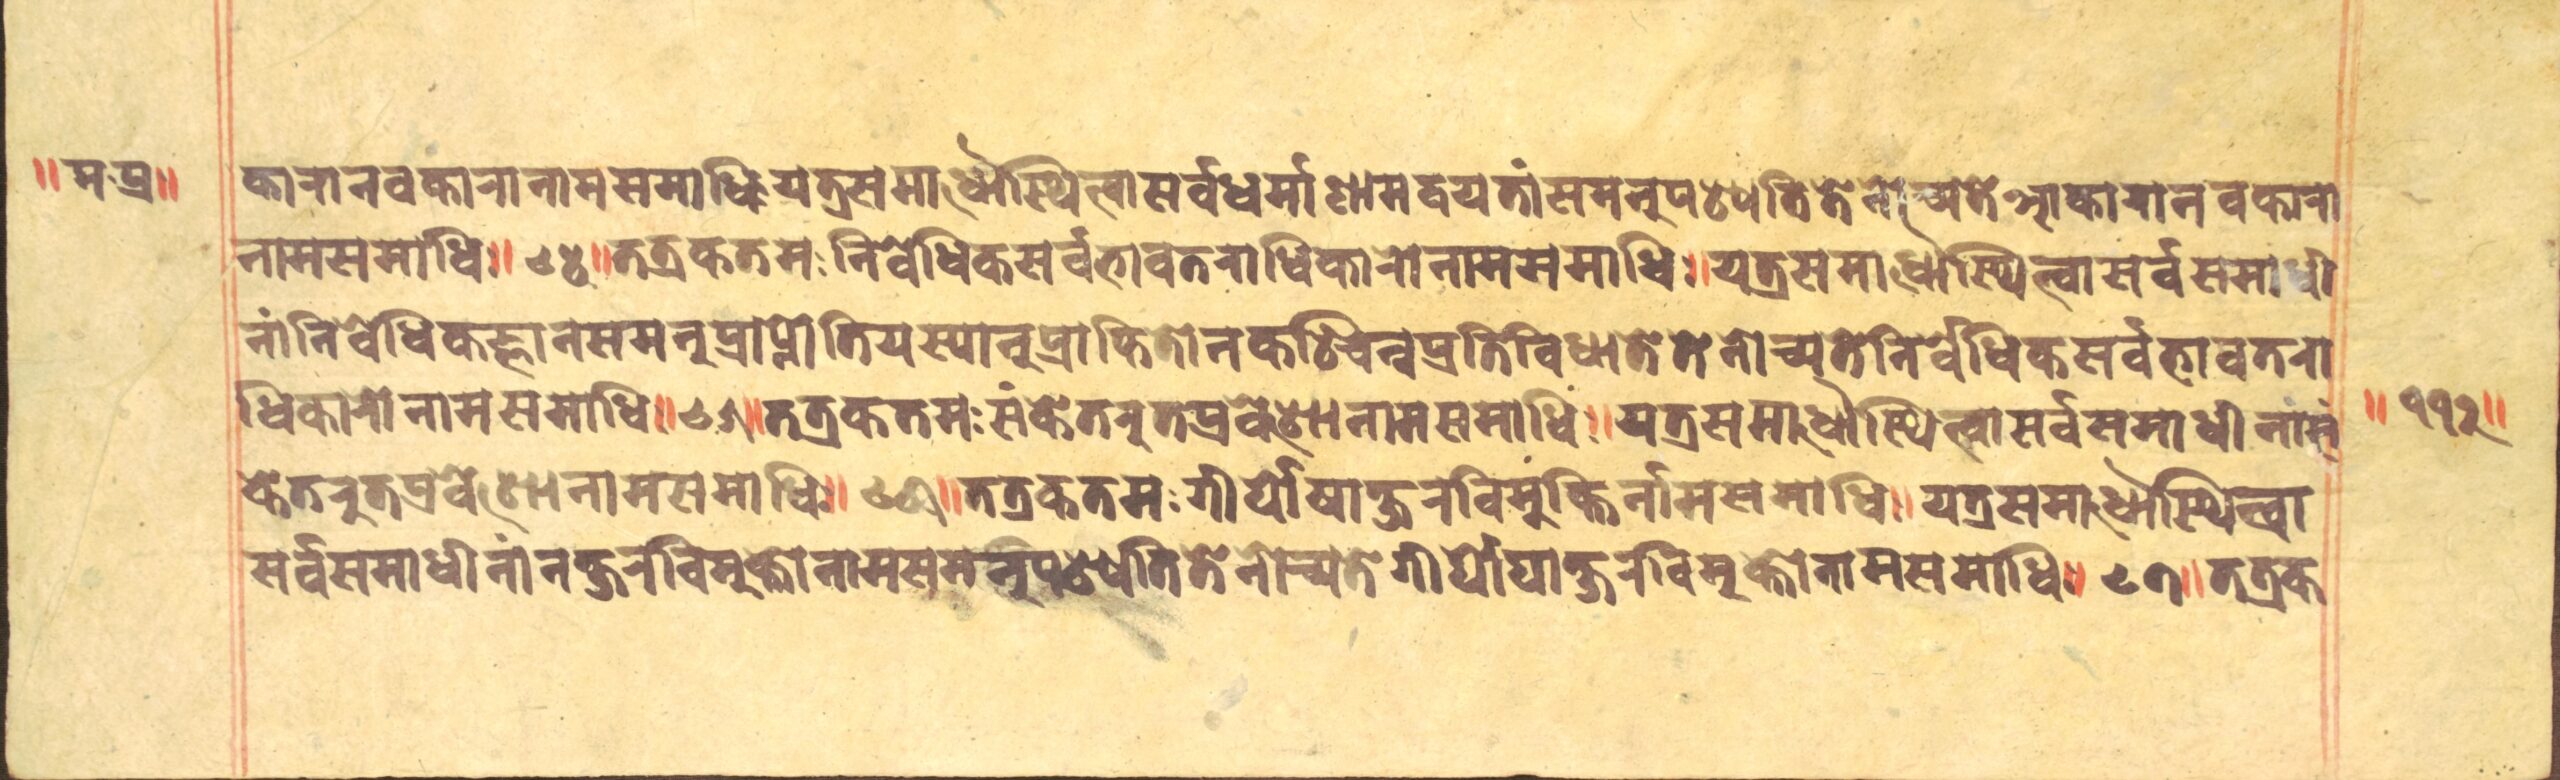 ॥ म॰प्र ॥
कारानवकारानामसमाधिः यत्रसमाधौस्थित्वासर्वधर्माणामद्वयतांसमनुपश्यतितेनोच्यतेआकारानवकारा
नामसमाधिः॥ ९४ ॥तत्रकतमः निर्वेधिकसर्वभावतराधिकारोनामसमाधिः॥ यत्रसमाधौस्थित्वासर्वसमाधी
नांनिर्वेधिकज्ञानसमनुप्राप्नोतियस्यानुप्राप्तितोनकश्चिन्नप्रतिविधातेतेनोच्यतेनिर्वेधिकसर्वभावतरा
धिकारोनामसमाधिः॥ ९५ ॥तत्रकतमः संकेतरुतप्रवेशोनामसमाधिः॥ यत्रसमाधौस्थित्वासर्वसमाधीनांसं
केतरुतप्रवेशोनामसमाधिः॥ ९६ ॥तत्रकतमः गीर्घोषाक्षरविमुक्तिर्नामसमाधिः॥ यत्रसमाधौस्थित्वा
सर्वसमाधीनांनक्षरविमुक्तोनामसमनुपश्यतितेनोच्यतेगीर्घोषाक्षरविमुक्तोनामसमाधिः॥ ९७ ॥तत्रक
॥ ११२ ॥